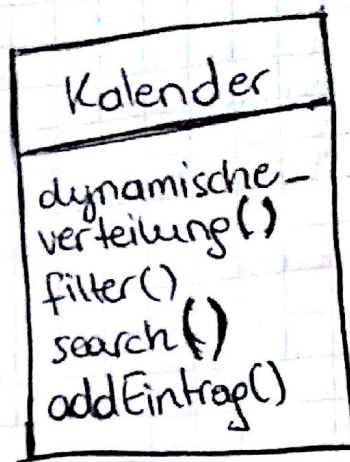 Kalender
dynamische_
verteilung()
filter()
search()
addEintrag()